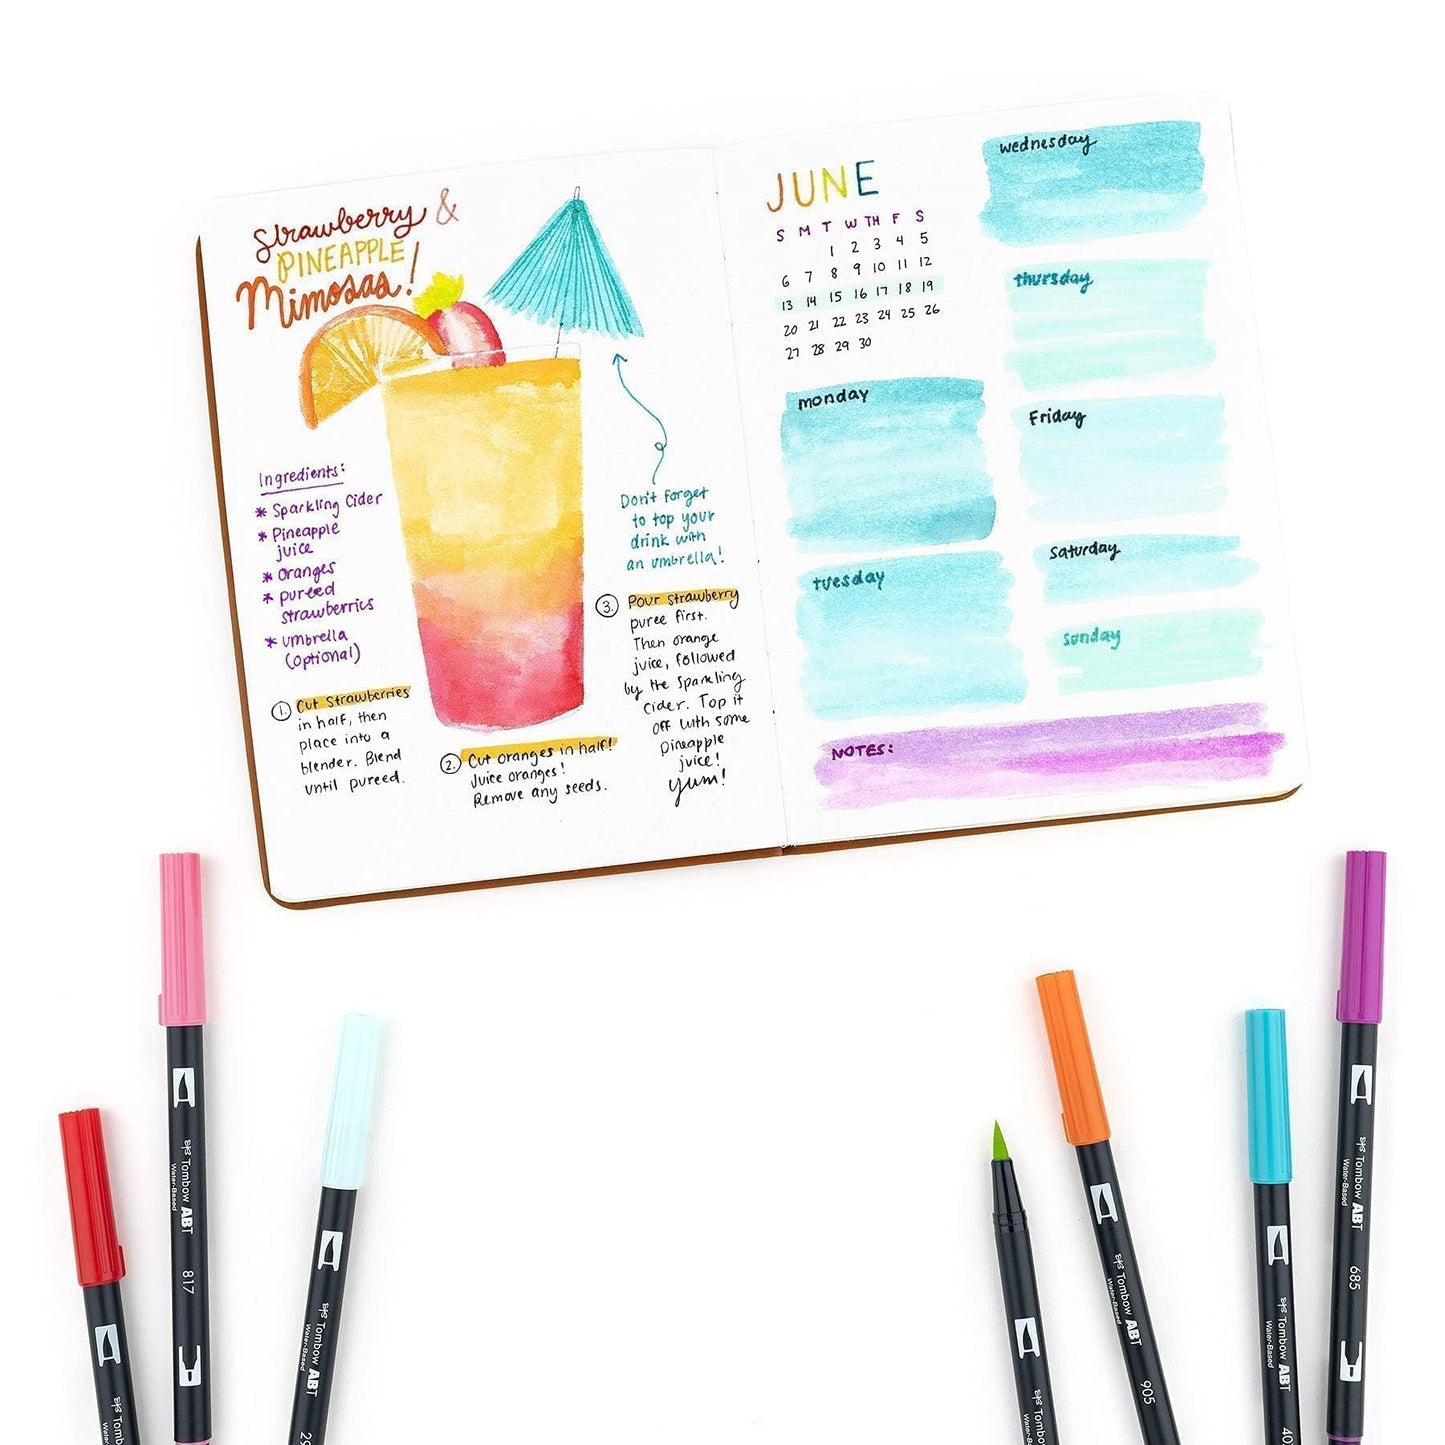 Strawberry &
PINEAPPLE
Mimosas!
Ingredients:
* Sparkling Cider
* Pineapple
juice
* oranges
* pureed
strawberries
* umbrella
(optional)
1. Cut Strawberries
in half, then
place into a
blender. Blend
until pureed.
2. Cut oranges in half!
Juice oranges!
Remove any seeds.
Don't forget
to top your
drink with
an umbrella!
3. Pour strawberry
puree first.
Then orange
juice, followed
by the sparkling
cider. Top it
off with some
pineapple
juice!
yum!
JUNE
S M T W TH F S
1 2 3 4 5
6 7 8 9 10 11 12
13 14 15 16 17 18 19
20 21 22 23 24 25 26
27 28 29 30
monday
tuesday
wednesday
thursday
Friday
Saturday
sunday
NOTES:
Tombow
Water-Based
Tombow ABT
Water-Based
817
Tombow ABT
Water-Based
29
Tombow ABT
Water-Based
905
Tombow ABT
Water-Based
40
Tombow ABT
Water-Based
685